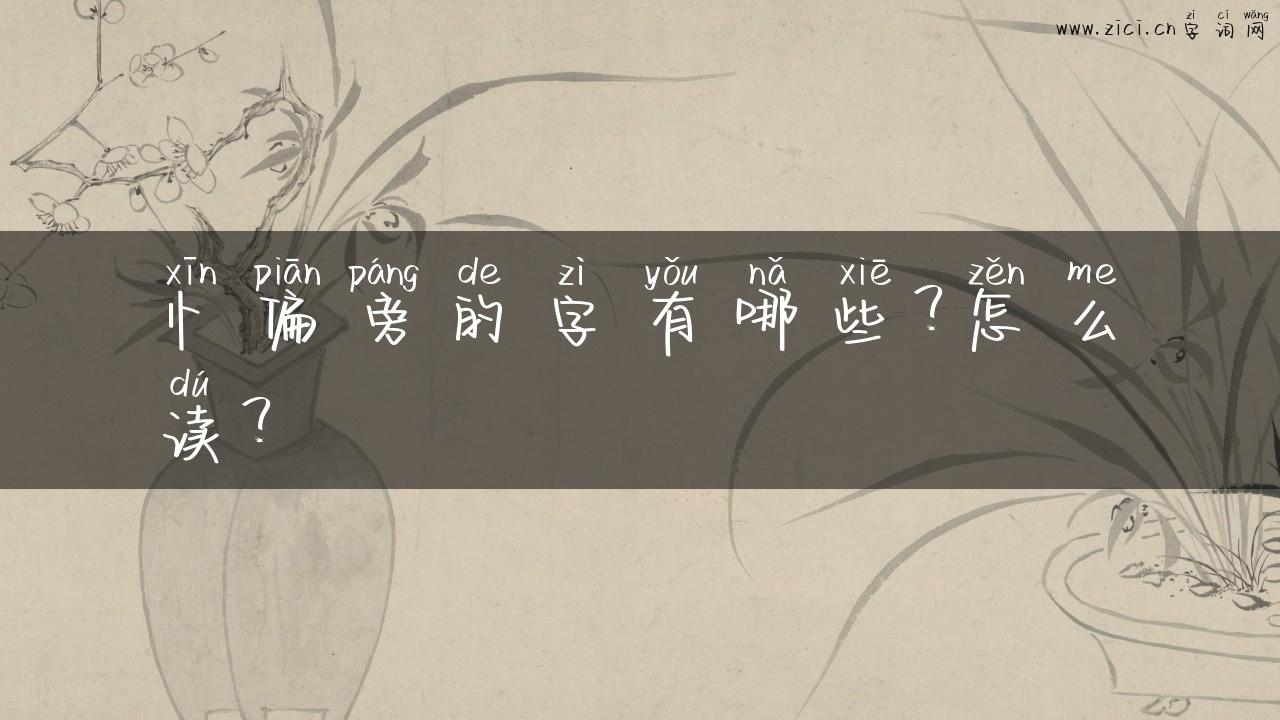 zì cí wǎng
www.zici.cn 字 词 网
xīn piān páng de zì yǒu nǎ xiē zěn me
忄 偏 旁 的 字 有 哪 些 ? 怎 么
dú
读 ?